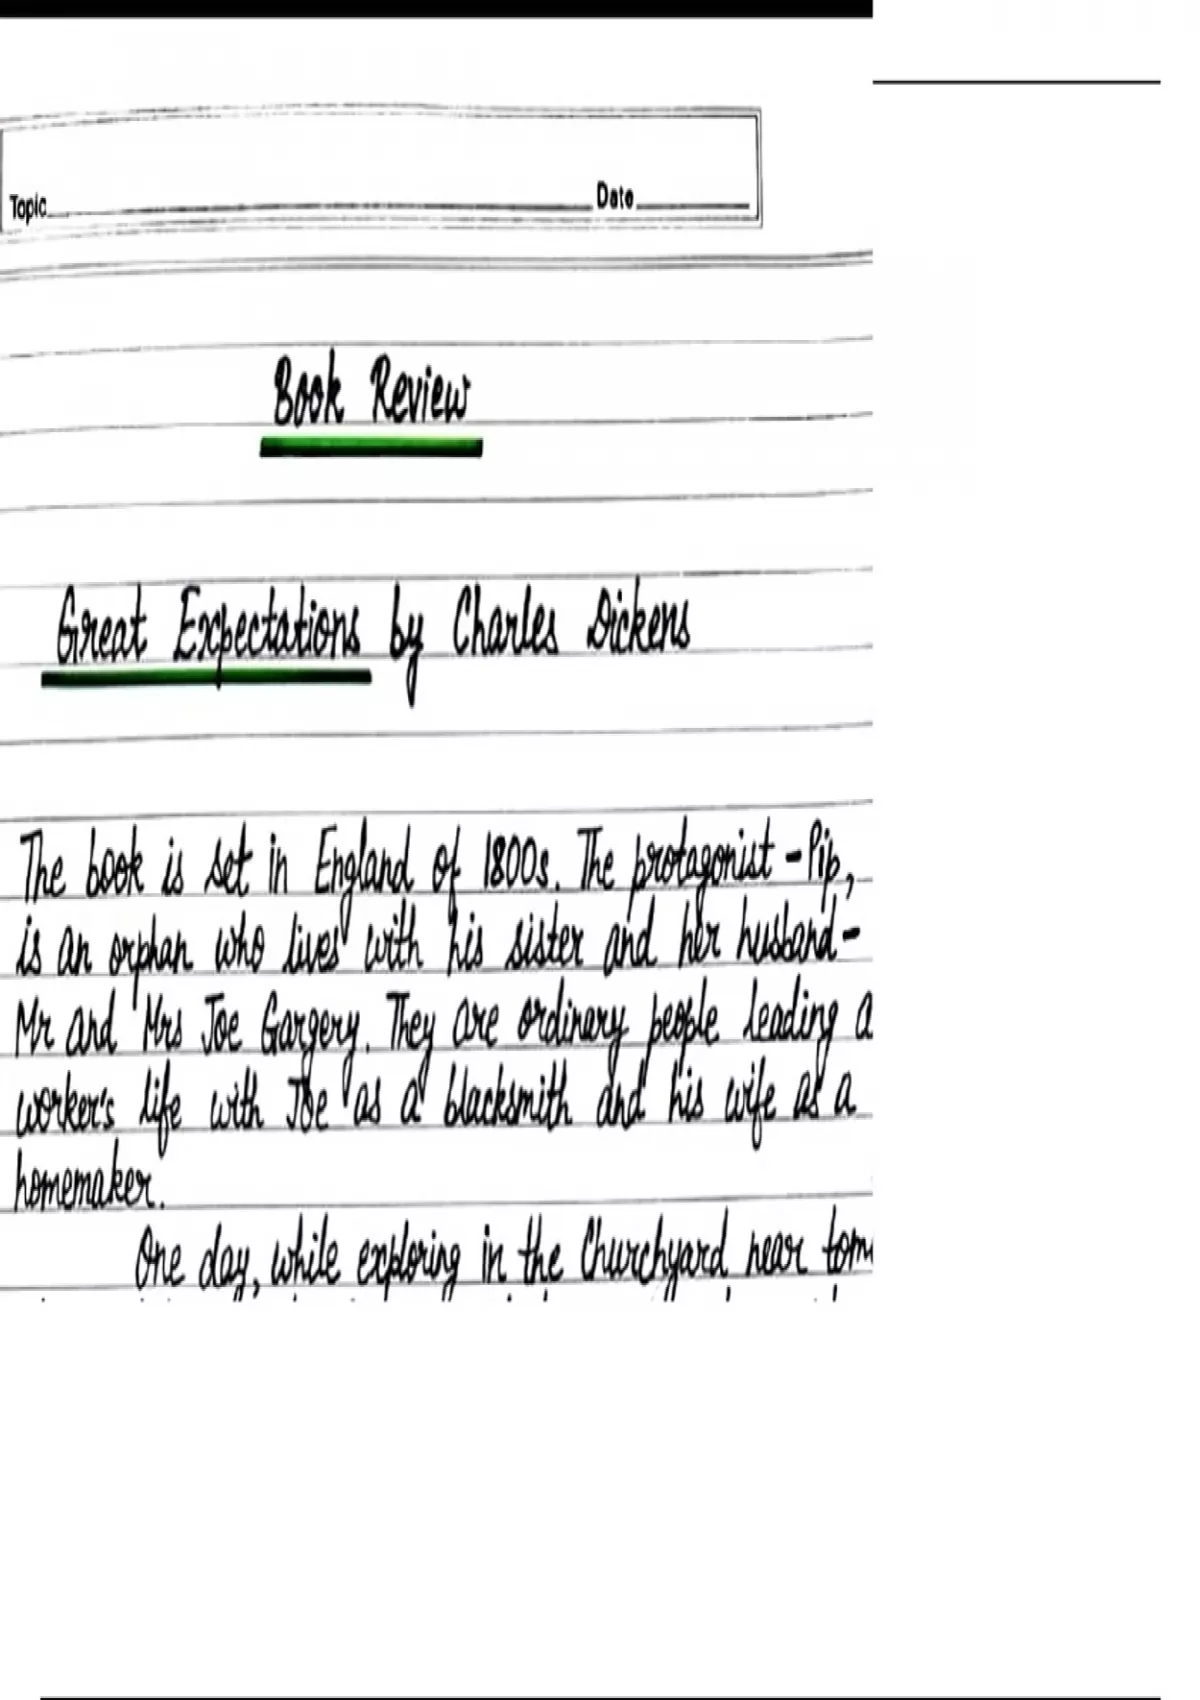 Topic Date
Book Review
Great Expectations by Charles Dickens
The book is set in England of 1800s. The protagonist - Pip,
is an orphan who lives with his sister and her husband -
Mr and Mrs Joe Gargery. They are ordinary people leading a
worker's life with Joe as a blacksmith and his wife as a
homemaker.
One day, while exploring in the Churchyard near